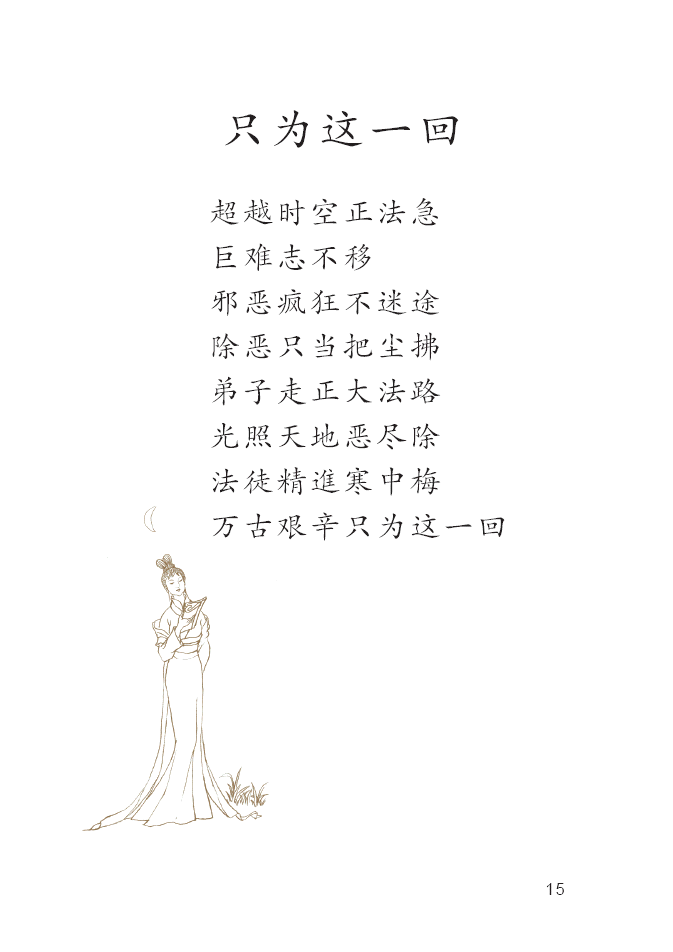 只为这一回
超越时空正法急
巨难志不移
邪恶疯狂不迷途
除恶只当把尘拂
弟子走正大法路
光照天地恶尽除
法徒精進寒中梅
万古艰辛只为这一回
15